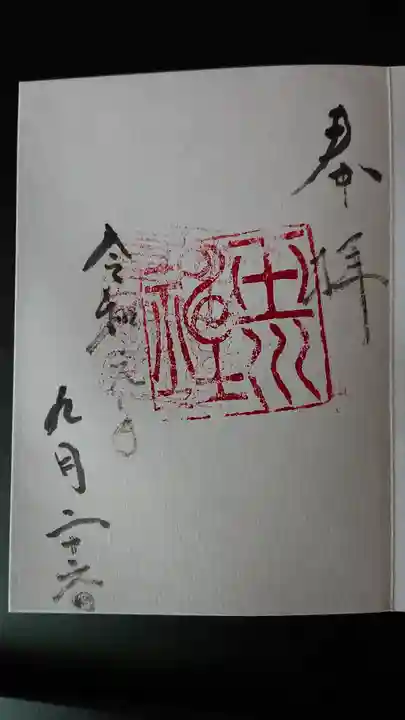 奉拝
令和元年
九月二十六日